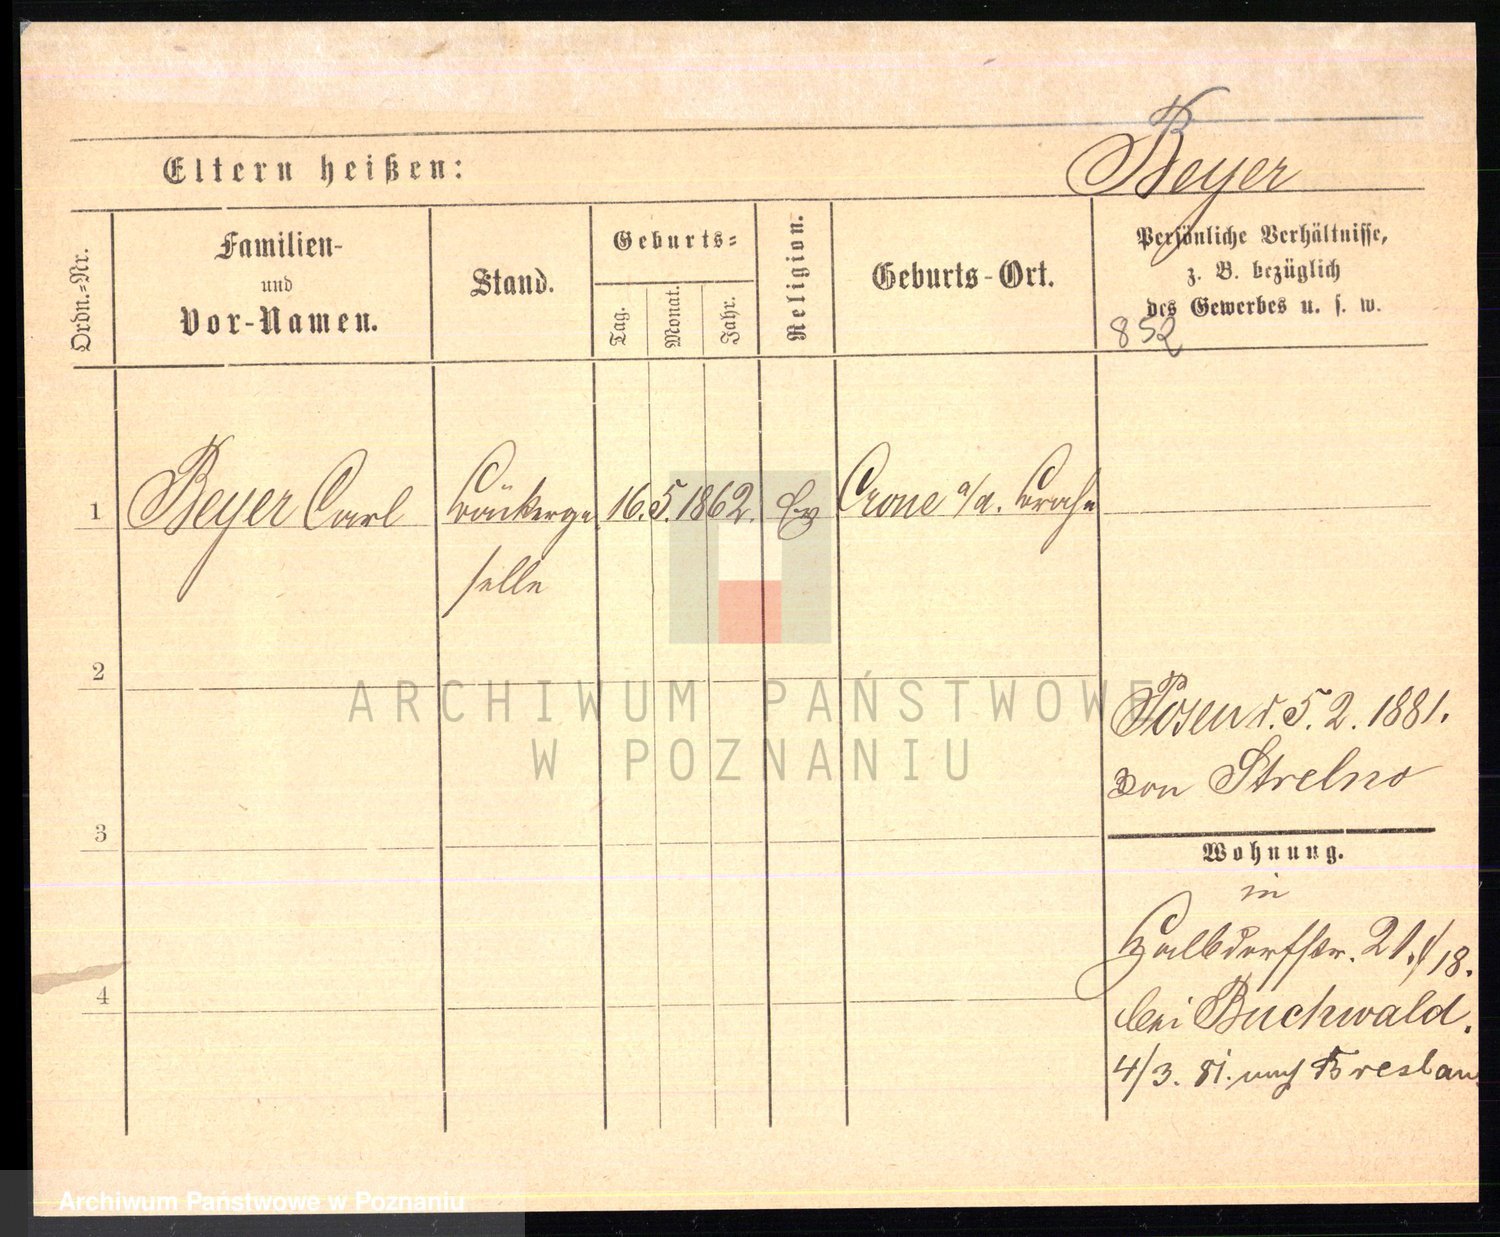 Beyer
Eltern heißen:
Ordn.-Nr.
Familien-
und
Vor-Namen.
Stand.
Geburts-
Tag.
Monat.
Jahr.
Religion.
Geburts-Ort.
Persönliche Verhältnisse,
z. B. bezüglich
des Gewerbes u. s. w.
852
1
Beyer Carl
Bäckerge
selle
16. 5. 1862.
Ev
Crone a/d. Brahe
2
Posen d. 5. 2. 1881.
von Strelno
3
Wohnung.
in
Halbdorfstr. 21./18.
bei Buchwald.
4
4/3. 81. nach Breslau
ARCHIWUM PAŃSTWOWE
W POZNANIU
Archiwum Państwowe w Poznaniu